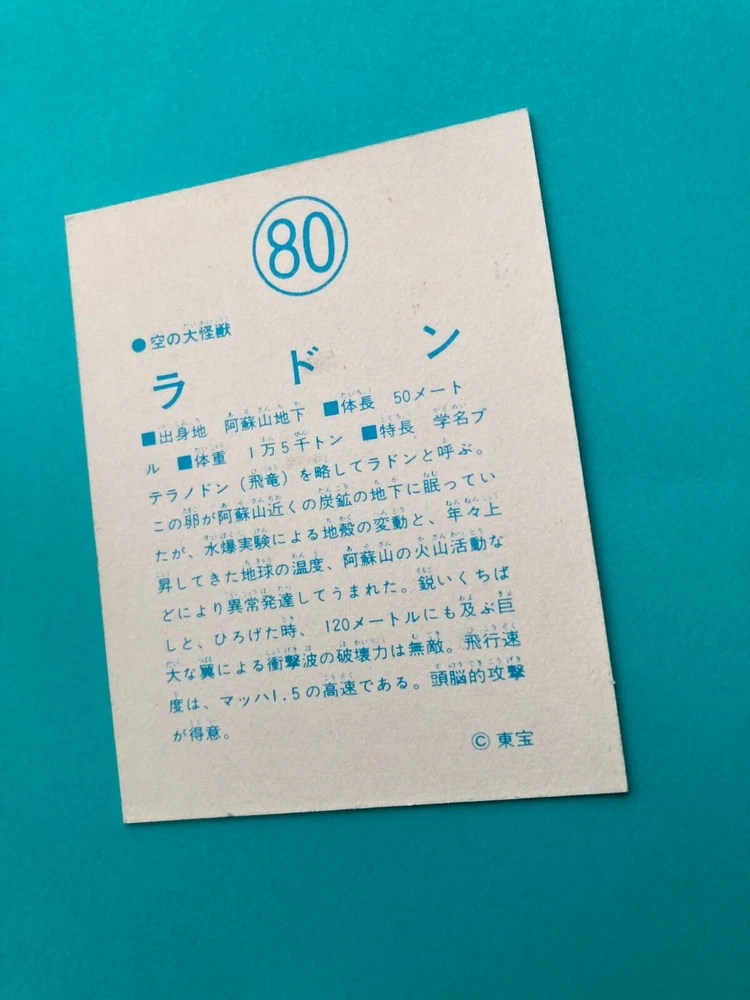 80
●空の大怪獣
ラドン
■出身地 阿蘇山地下 ■体長 50メート
ル ■体重 1万5千トン ■特長 学名プ
テラノドン(飛竜)を略してラドンと呼ぶ。
この卵が阿蘇山近くの炭鉱の地下に眠ってい
たが、水爆実験による地殻の変動と、年々上
昇してきた地球の温度、阿蘇山の火山活動な
どにより異常発達してうまれた。鋭いくちば
しと、ひろげた時、120メートルにも及ぶ巨
大な翼による衝撃波の破壊力は無敵。飛行速
度は、マッハ1.5の高速である。頭脳的攻撃
が得意。
©東宝